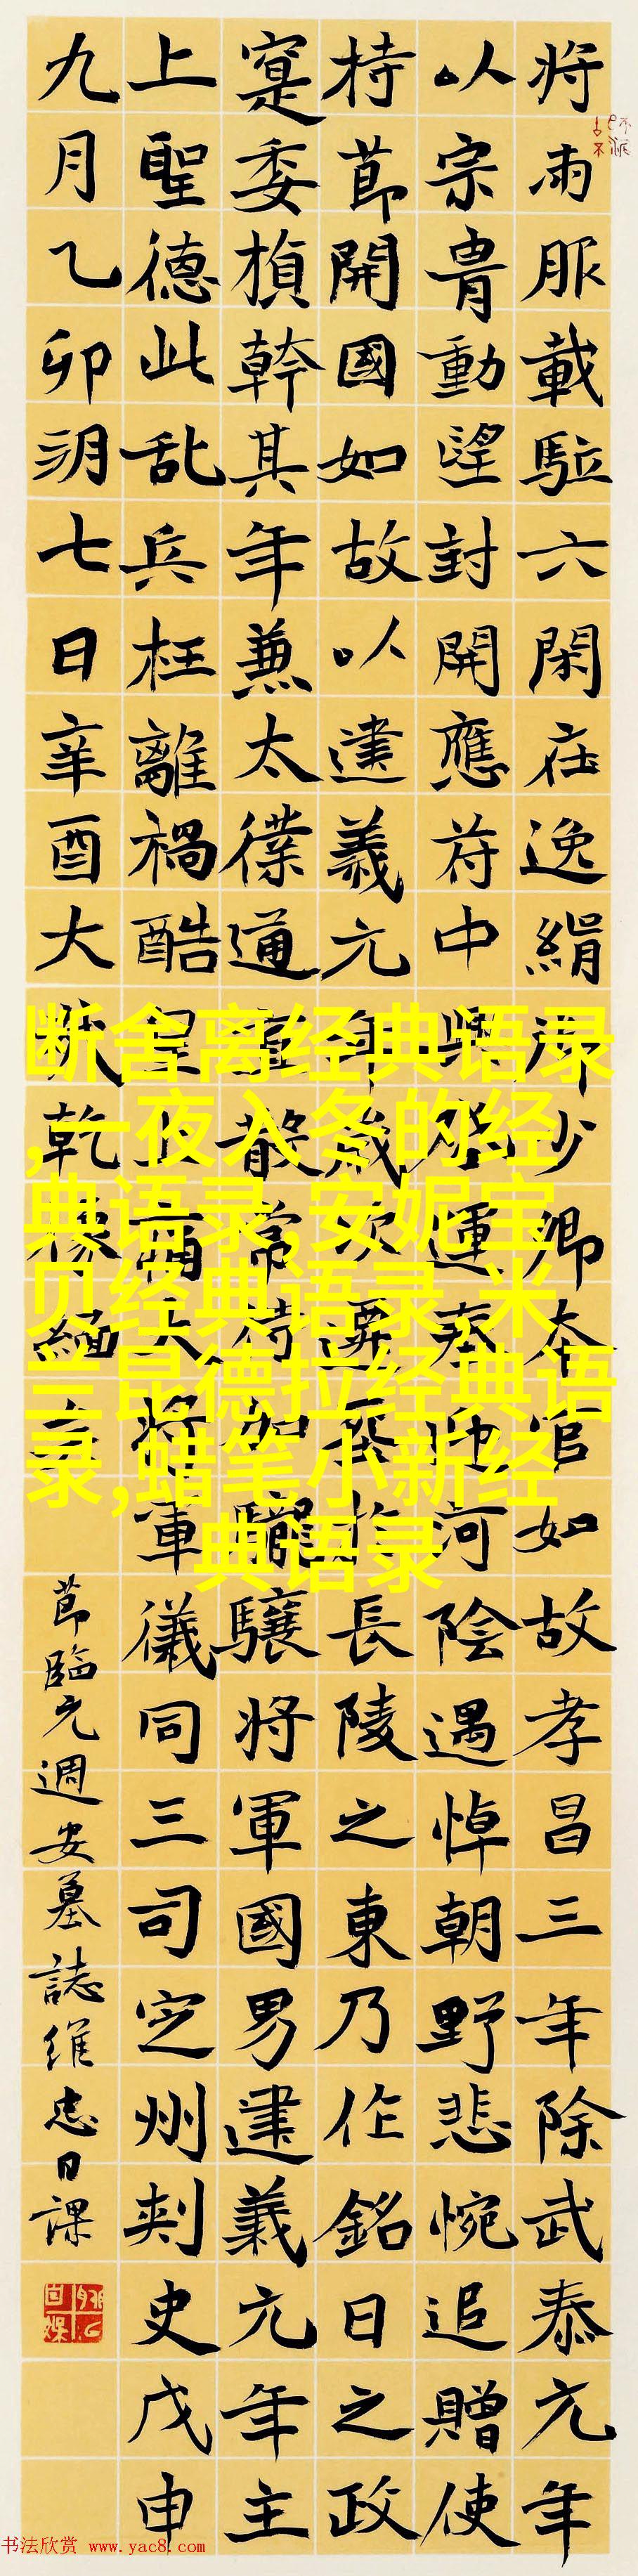 将雨服載駈六閑在逸少卿本官如故孝昌三年除武泰元年
以宗胄動望封開應苻中興啓運奉迎河陰遇悼朝野悲惋追贈使
持節開國如故以建義元年歲次遷葬於長陵之東乃作銘日之政
寔委楨幹其年兼太僕通直散常侍加驤將軍國男建義元年主
上聖德此乱兵枉離禍酷皇上大将軍儀同三司定州刺史戊申
九月乙卯朔七日辛酉大乾緬
節臨元週安墓誌維忠日課
断舍离经典语录
,一夜入冬的经
典语录,安妮宝
贝经典语录,米
兰昆德拉经典语
录,蜡笔小新经
典语录
书法欣赏 www.yac8.com